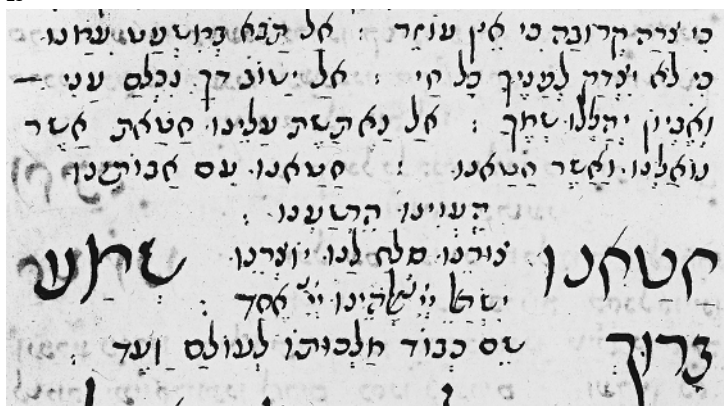 כי צרה קרובה כי אין עוזר : אל תבא במשפט עמנו
כי לא יצדק לפניך כל חי : אל ישוב דך נכלם עני —
ואביון יהללו שמך : אל נא תשת עלינו חטאת אשר
נואלנו ואשר חטאנו : חטאנו עם אבותינו
העוינו הרשענו :
חטאנו צורנו סלח לנו יוצרנו שמע
ישראל יי אלהינו יי אחד :
ברוך שם כבוד מלכותו לעולם ועד :